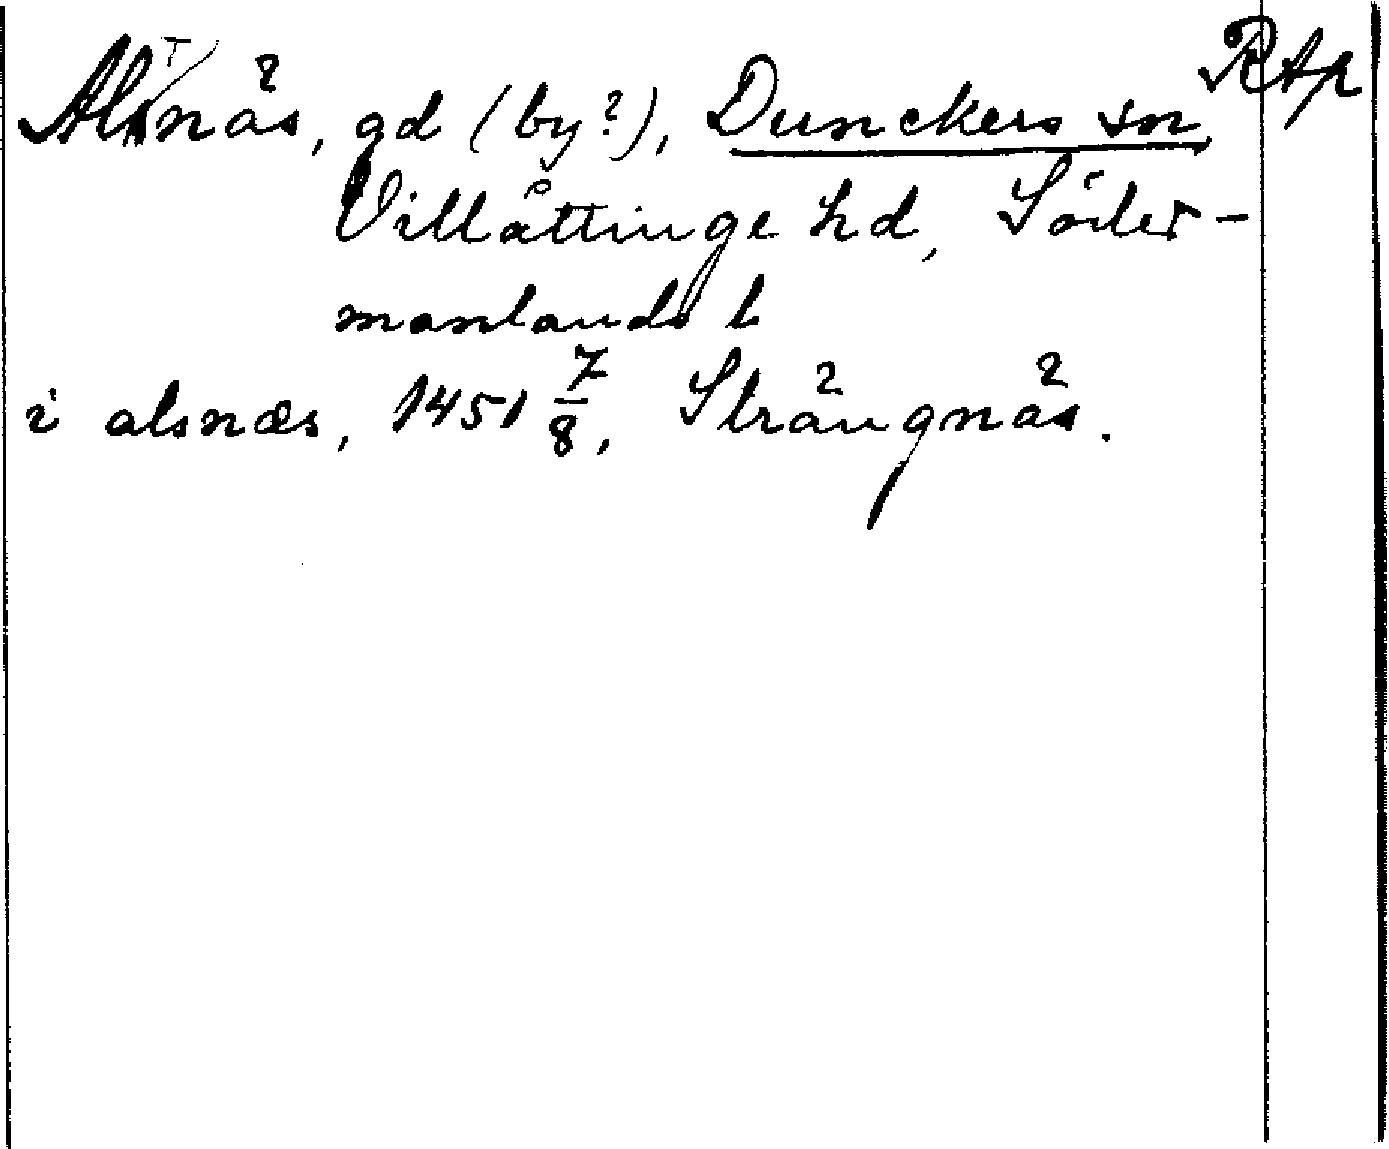 Alsnäs, gd (by?), Dunckers sn, RAp
Villåttinge hd, Söder-
manlands l
i alsnæs, 1451 7/8, Strängnäs.